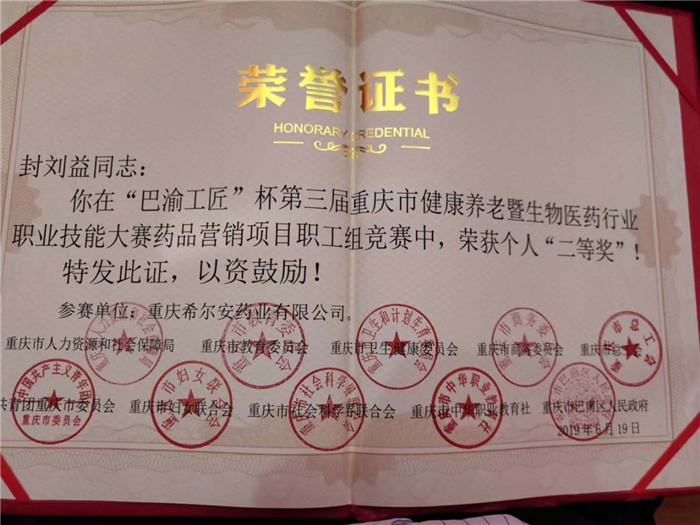 荣誉证书
HONORARY CREDENTIAL
封刘益同志：
你在“巴渝工匠”杯第三届重庆市健康养老暨生物医药行业
职业技能大赛药品营销项目职工组竞赛中，荣获个人“二等奖”！
特发此证，以资鼓励！
参赛单位：重庆希尔安药业有限公司。
重庆市人力资源和社会保障局 重庆市教育委员会 重庆市卫生健康委员会 重庆市商务委员会 重庆市总工会
共青团重庆市委员会 重庆市妇女联合会 重庆市社会科学界联合会 重庆市中华职业教育社 重庆市巴南区人民政府
中国共产主义青年团
重庆市委员会
2019年6月19日